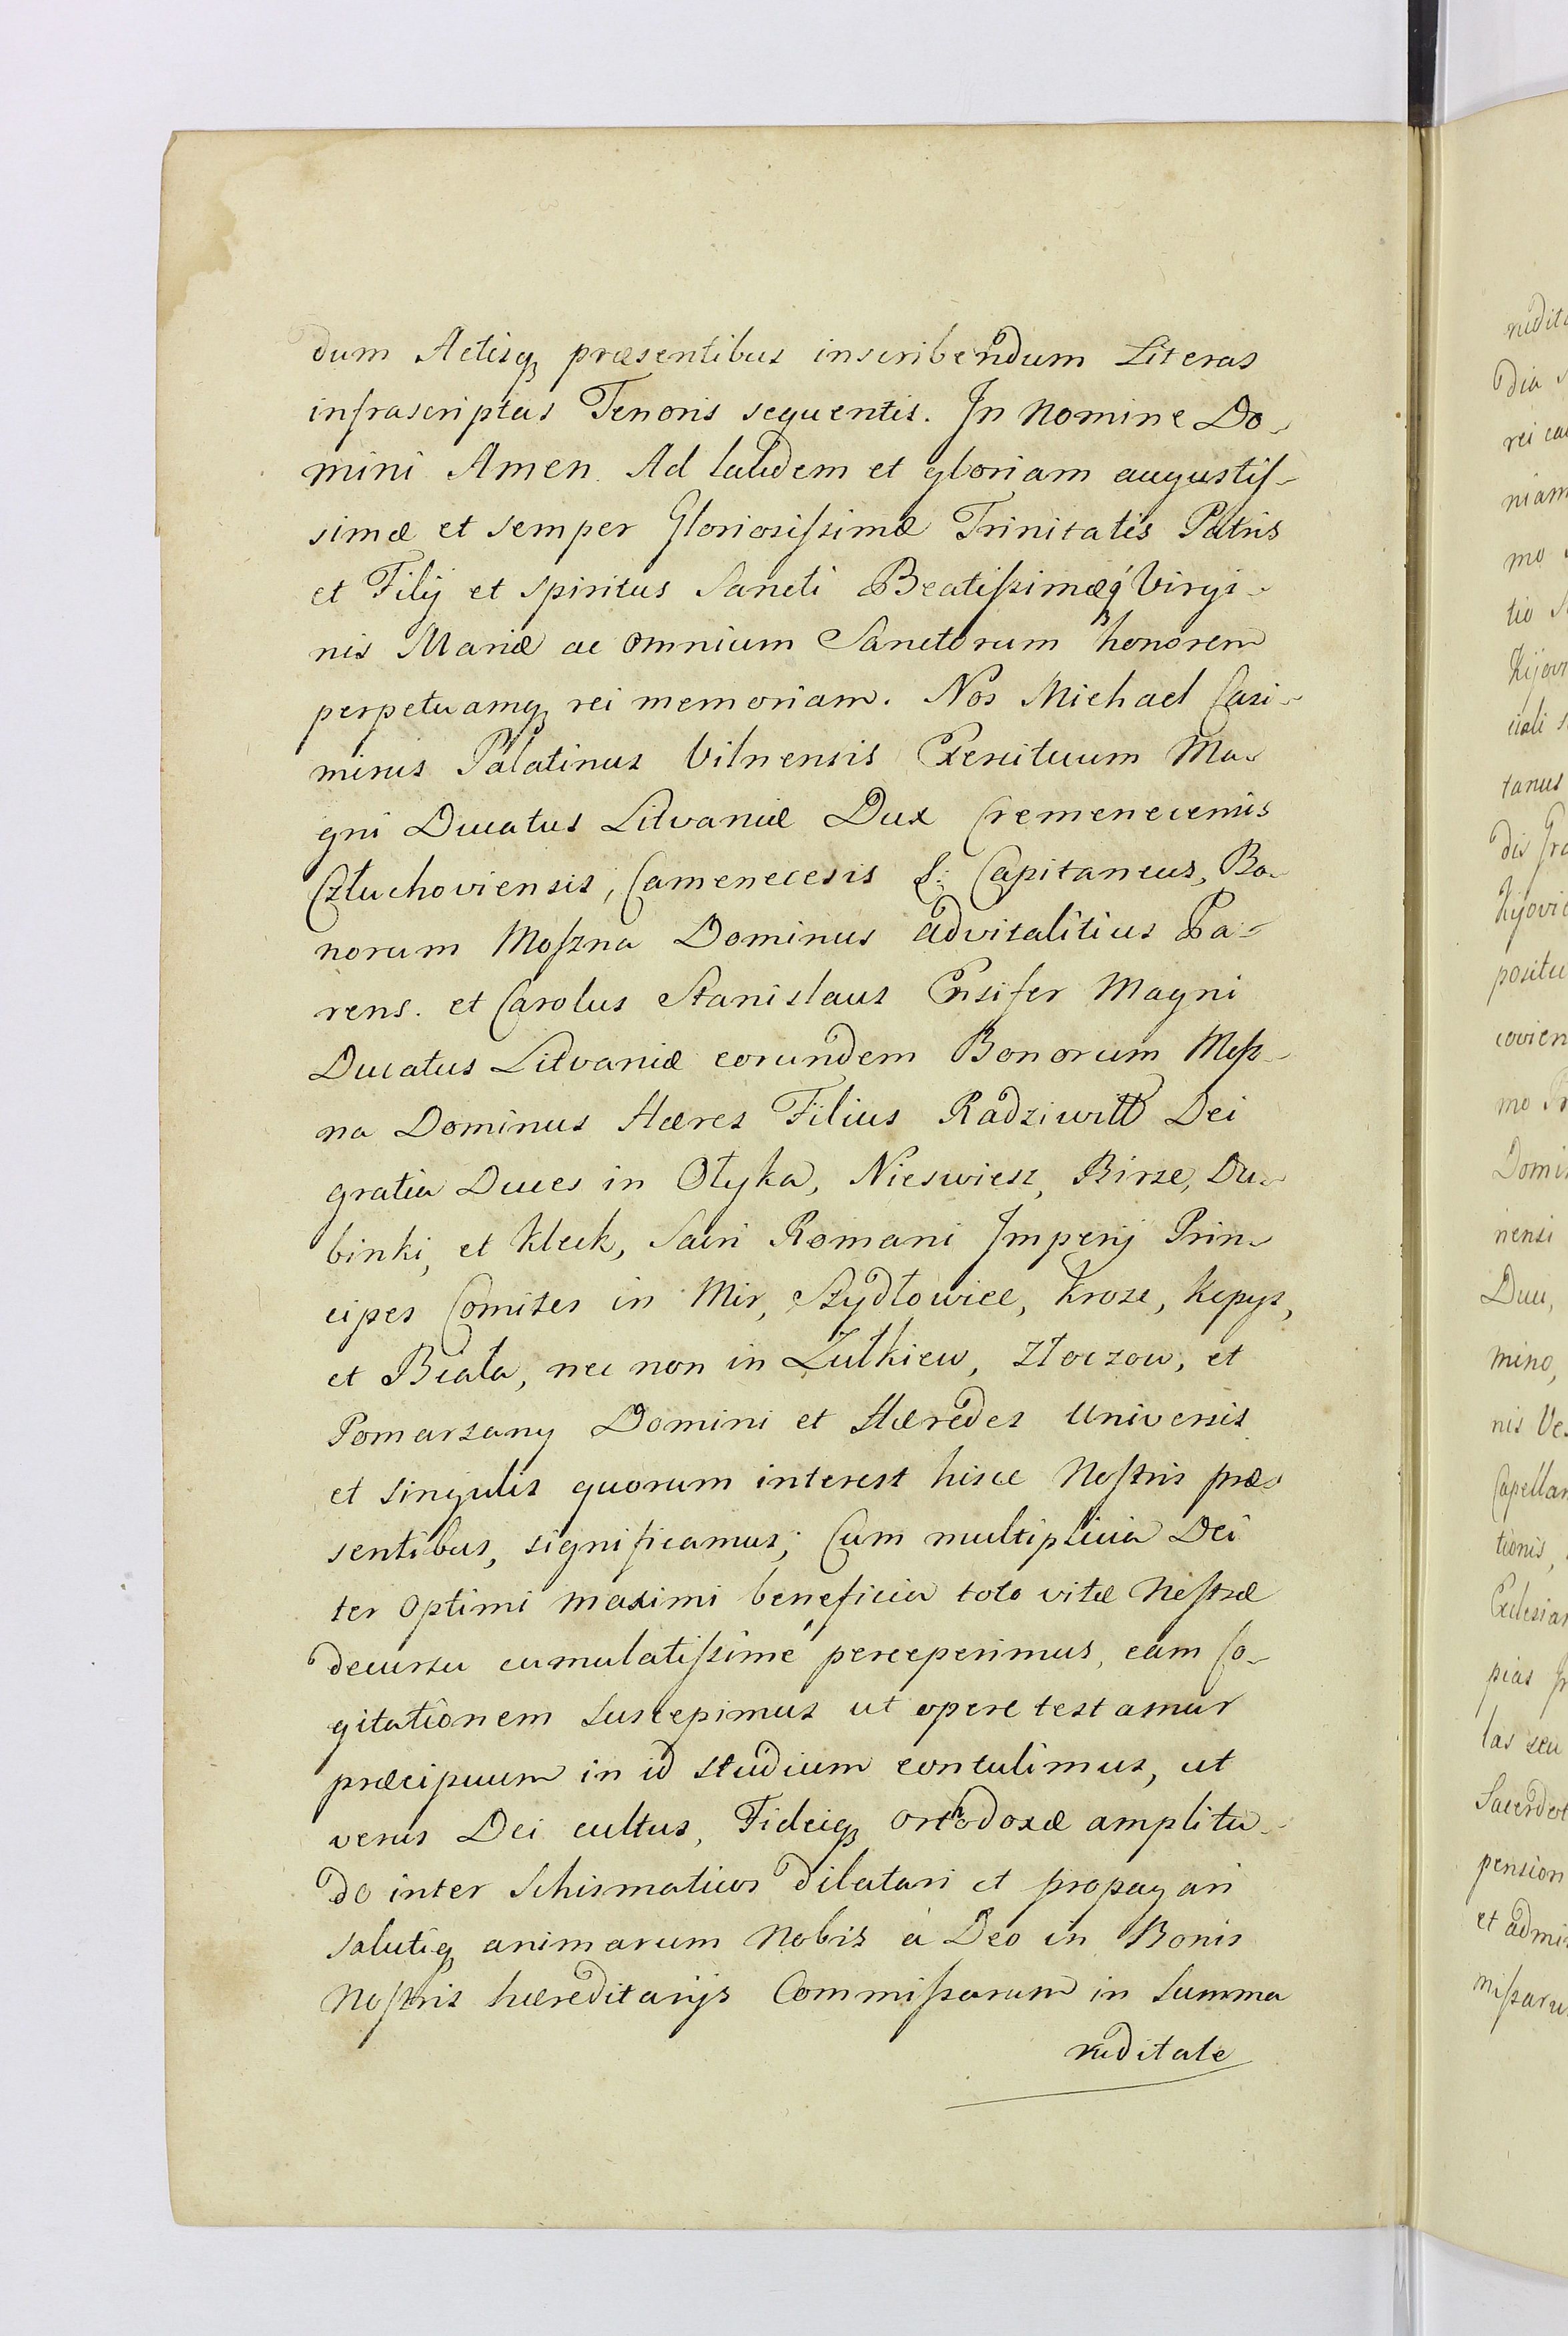 dum Actisq præsentibus inscribendum Literas
infrascriptas Tenoris sequentis. In Nomine Do-
mini Amen. Ad laudem et gloriam augustis-
simæ et semper Gloriosissimæ Trinitatis Patris
et Filij et Spiritus Sancti Beatissimæq Virgi-
nis Mariæ ac omnium Sanctorum honorem
perpetuamq rei memoriam. Nos Michael Casi-
mirus Palatinus Vilnensis Exercituum Ma-
gni Ducatus Litvaniæ Dux Cremenecensis
Człuchoviensis, Camenecesis &: Capitaneus, Bo-
norum Moszna Dominus advitalitius Pa-
rens. et Carolus Stanislaus Ensifer Magni
Ducatus Litvaniæ eorundem Bonorum Mosz-
na Dominus Hæres Filius Radziwiłł Dei
gratia Duces in Ołyka, Nieswiesz, Birze, Du-
binki, et Kleck, Sacri Romani Imperij Prin-
cipes Comites in Mir, Szydłowiec, Kroze, Kopys,
et Biała, nec non in Żułkiew, Złoczow, et
Pomarzany Domini et Hæredes Universis
et singulis quorum interest hisce Nostris præ-
sentibus, significamus; Cum multiplicia Dei
ter Optimi maximi beneficia toto vitæ Nostræ
decursu cumulatissime perceperimus, eam Co-
gitationem suscepimus ut opere testamur
præcipuum in id studium contulimus, ut
verus Dei cultus, Fideiq orthodoxæ amplitu-
do inter Schismaticos dilatari et propagari
salutiq animarum Nobis à Deo in Bonis
Nostris hæreditarijs Commissarum in Summa
ruditate
niam
mo
tanus
Domi
nensi
mino,
pias
las seu
pension